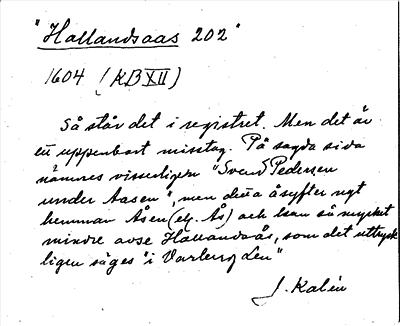 "Hallandsaas 202"
1604 (KB XII)
Så står det i registret. Men det är
ett uppenbart misstag. På sagda sida
nämnes visserligen "Svend Pedersen
under Aasen", men detta åsyftar
hemman Åsen (el. Ås) och kan så mycket
mindre avse Hallandsås, som det uttryck
ligen säges "i Varberg Len"
J. Kalén